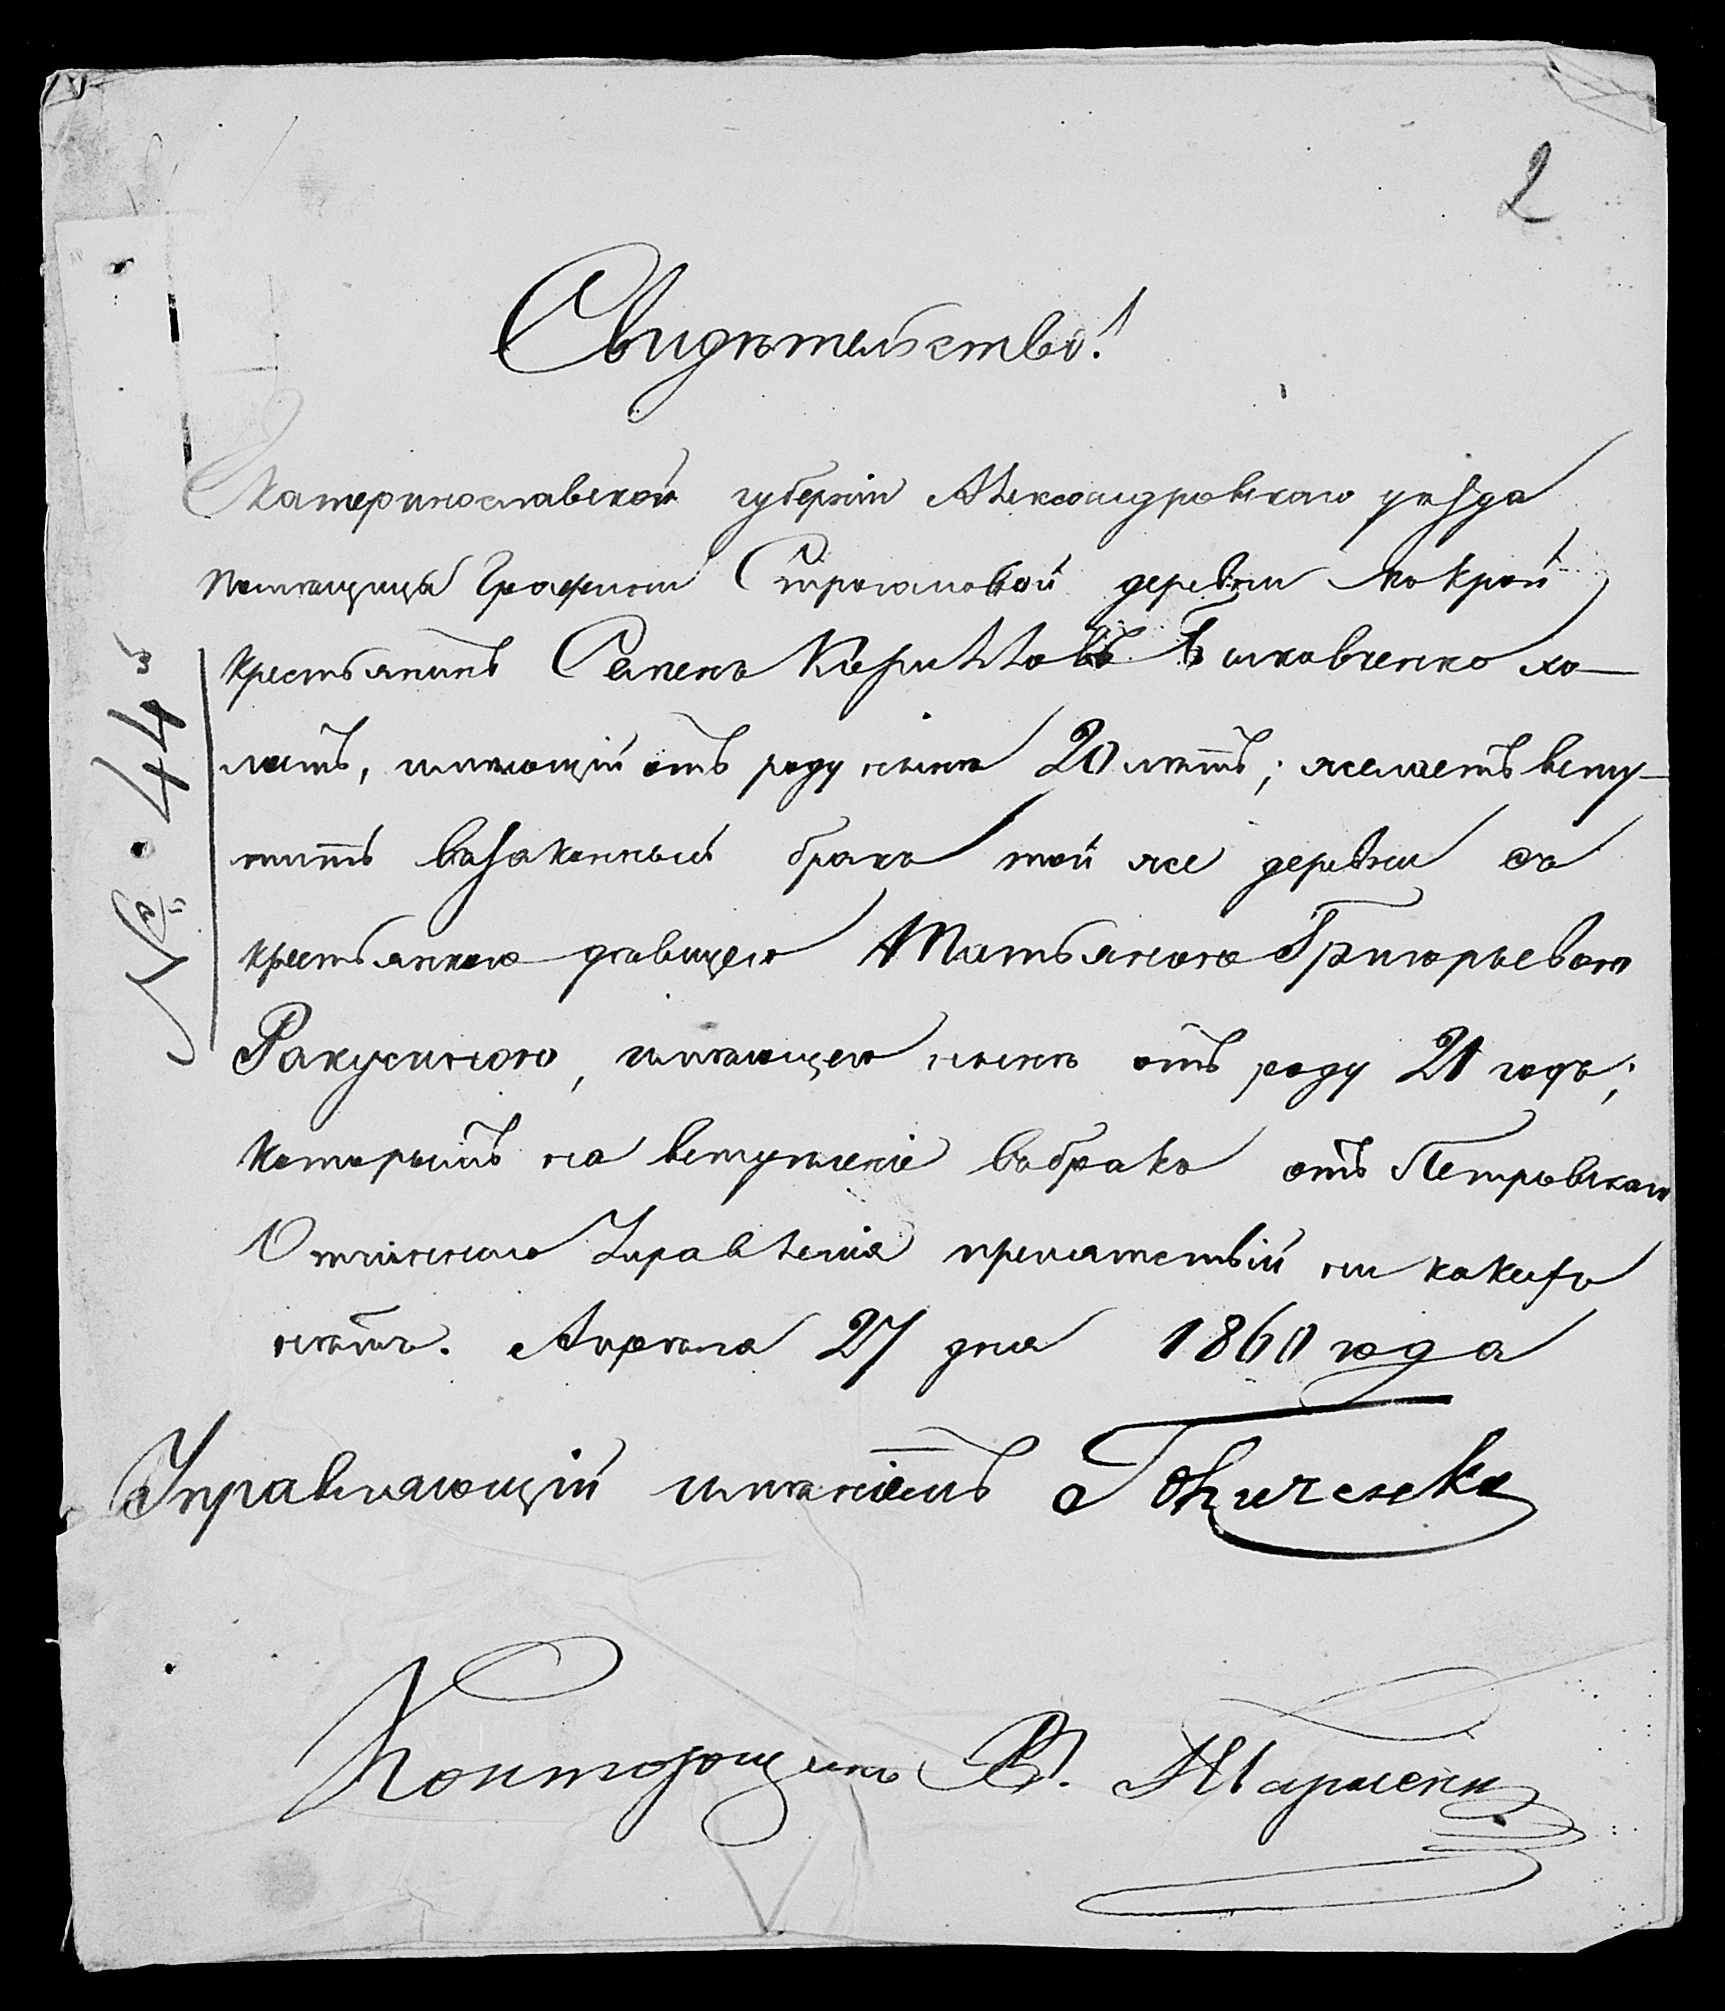 2
Свидѣтельство!
Екатеринославской губерніи Александровскаго уѣзда
помѣщицы Графини Строгановой деревни Мокрой
крестьянинъ Семенъ Кирилловъ Быковченко хо-
лостъ, имѣющій отъ роду нынѣ 20 лѣтъ; желаетъ всту-
пить възаконный бракъ той же деревни съ
крестьянкою дѣвицею Татьяною Григорьевою
Ракусиною, имѣющею нынѣ отъ роду 21 годъ;
которымъ на вступленіе въбракъ отъ Петровскаго
Отчиннаго Управленія препятствій ни какихъ
нѣтъ. Апрѣля 27 дня 1860 года
Управляющій имѣніемъ
Конторщикъ В.
№ 44